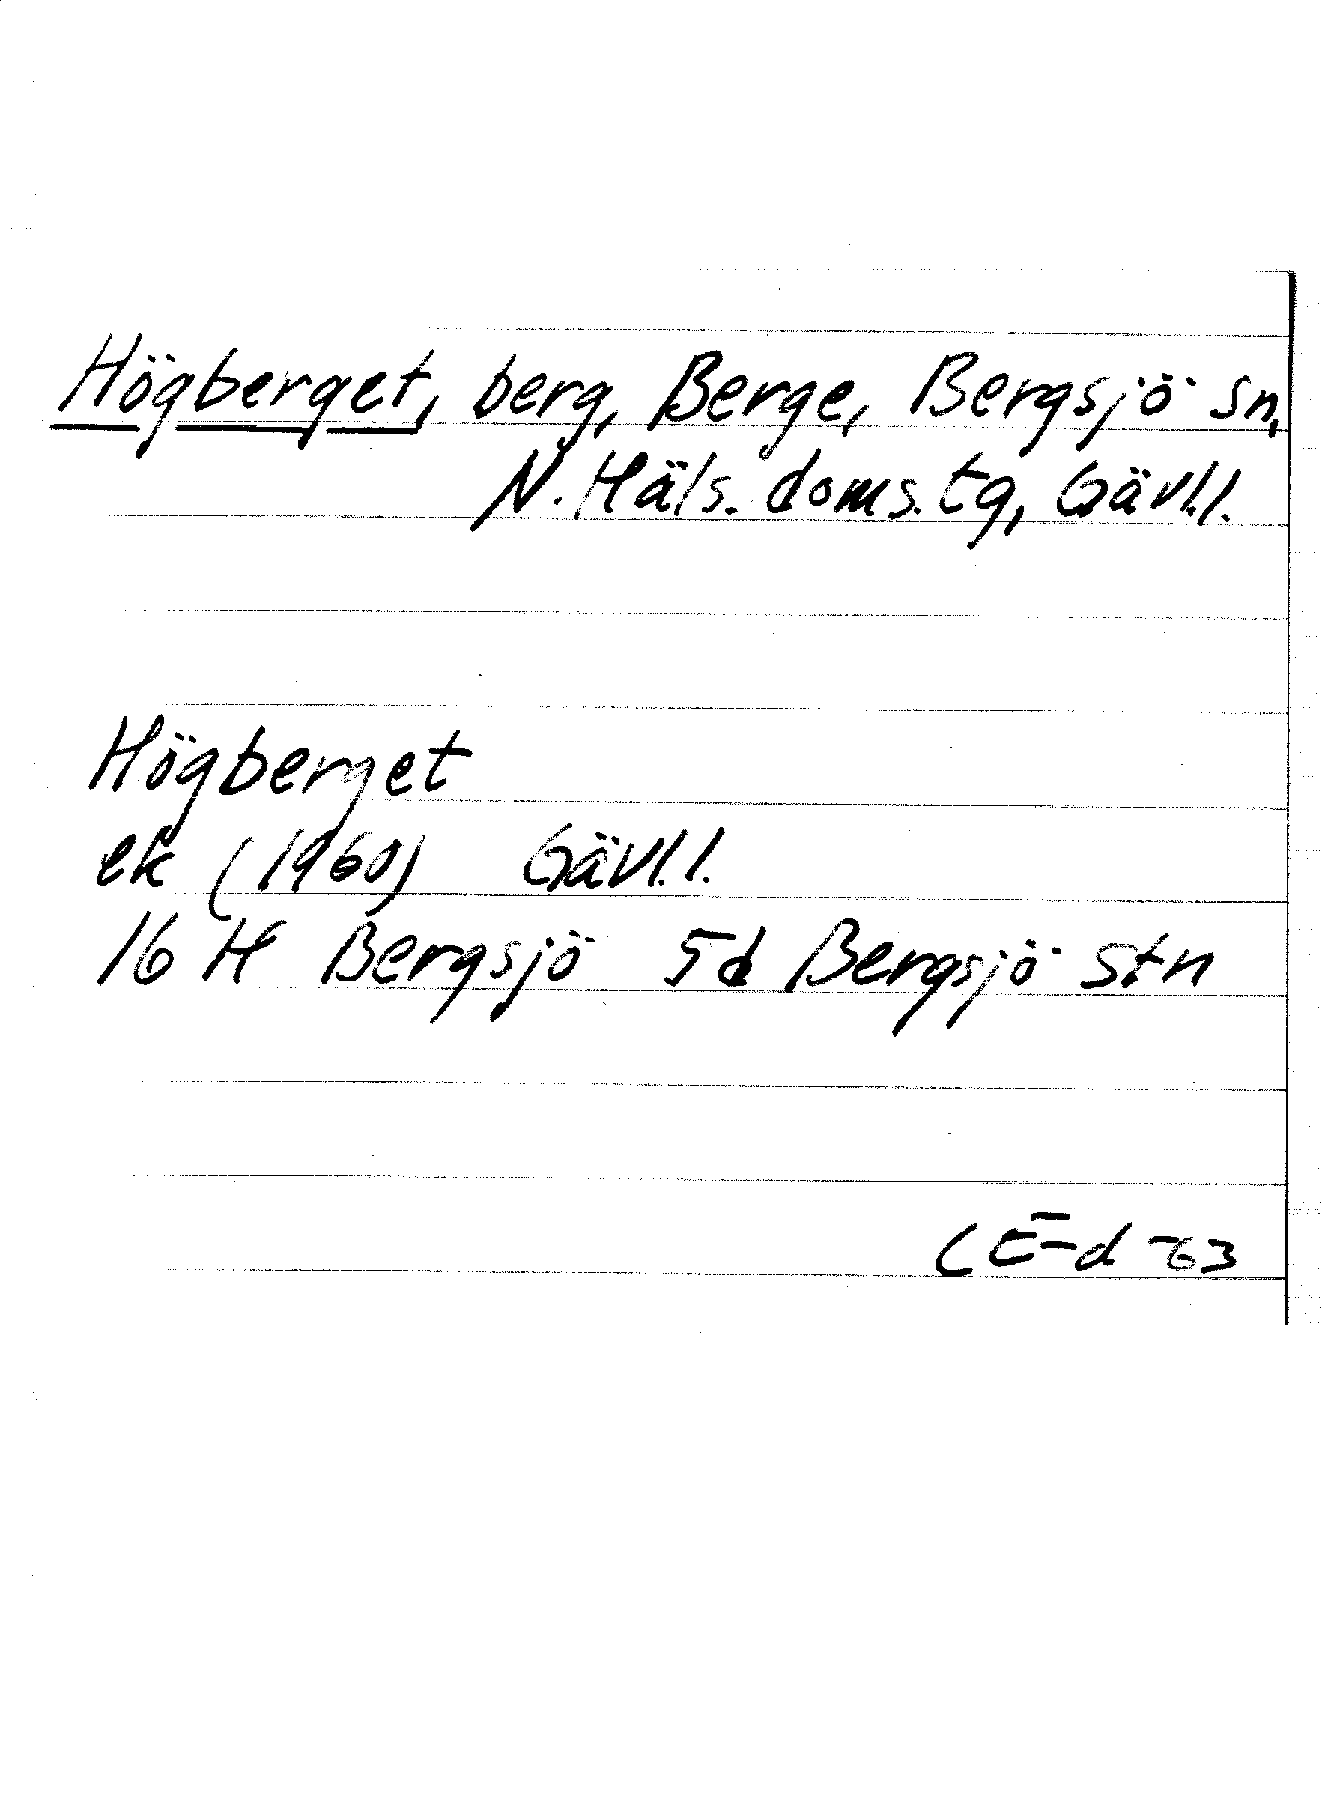 Högberget, berg, Berge, Bergsjö sn,
N. Häls. doms. tg, Gävl.l.
Högberget
ek (1960) Gävl.l.
16 H Bergsjö 5d Bergsjö stn
CE-d -63